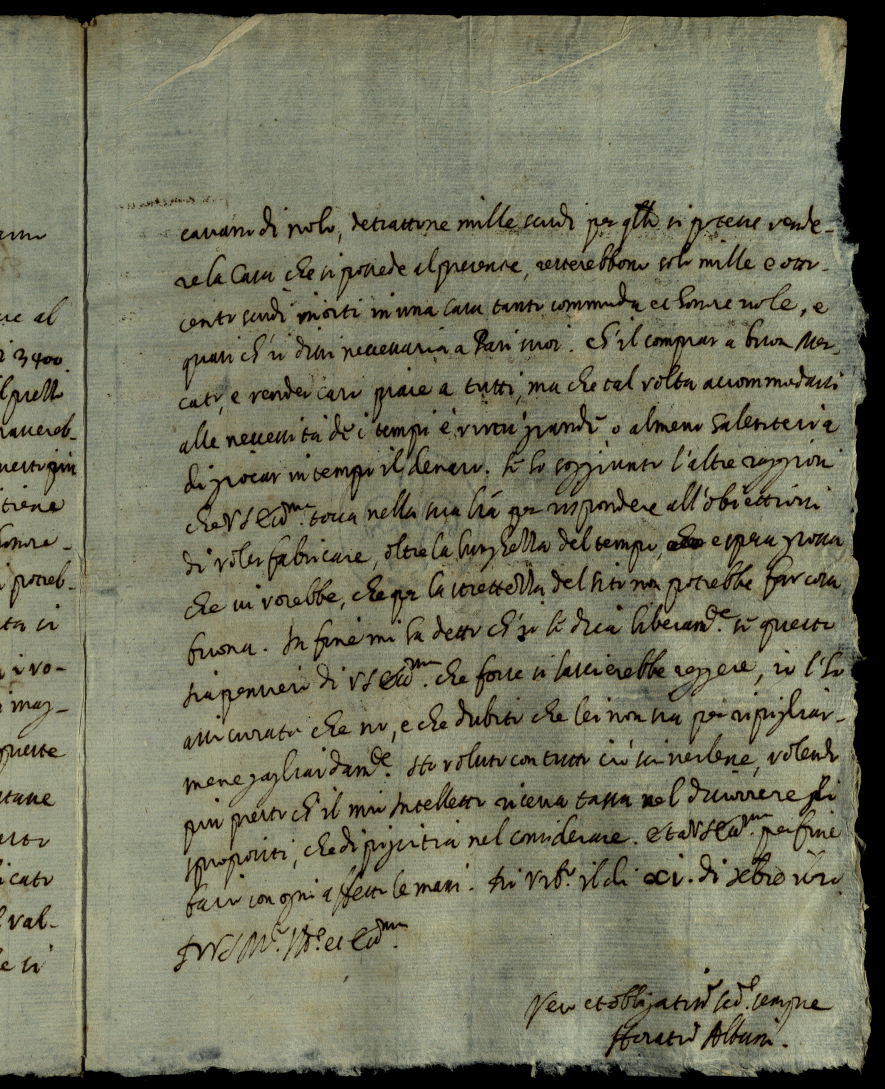 cavano di nolo, detrattone mille scudi per qlli si potesse vende-
re la Casa che si possede al presente, resterebbono solo mille e otto-
cento scudi morti in una casa tanto commoda et honorevole, e
quasi ch'io dissi necessaria a Pari suoi. Ch'il comprar a buon Mer-
cato, e vender caro piace a tutti, ma che tal volta accommodarsi
alle necessità de i tempi è virtù grande o almeno
di giocar in tempo il denaro. Le ho soggiunto l'altre raggioni
che VS Ecc.ma tocca nella sua l'ra per rispondere all'obiettioni
di voler fabricare, oltre la lunghezza del tempo, e spesa grossa
che ui vorebbe, che per la strettezza del sito non potrebbe far cosa
buona. In fine mi ha detto ch'io le dica liberam.te se questo
sia pensiero di VS Ecc.ma che forse si lascierebbe reggere, io l'ho
assicurato che no, e che dubito che lei non sia per ripigliar-
mene gagliardam.te. Ho voluto con tutto ciò scriverlene, volendo
più presto ch'il mio Intelletto riceva tassa nel discorrere gli
spropositi, che di pigritia nel considerare. Et a VS Ecc.ma per fine
bacio con ogni affetto le mani. Di Urb.o il dì xi. di xbre
Di VS M.to Ill.e et Ecc.ma
Vero et obligatiss.o sempre
Horatio Albani.
ue al
i 3400.
tiene
honore-
potreb-
ta si
i mag-
queste
icato
l val-
e si